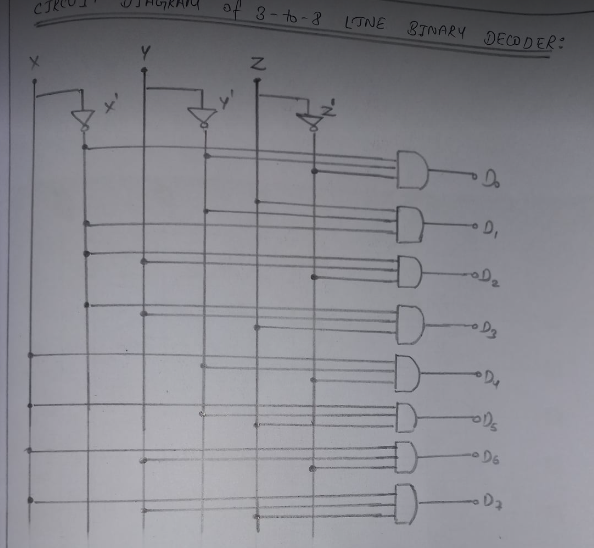 CIRCUIT DIAGRAM of 3-to-8 LINE BINARY DECODER:
X Y Z
X' Y' Z'
D0
D1
D2
D3
D4
D5
D6
D7